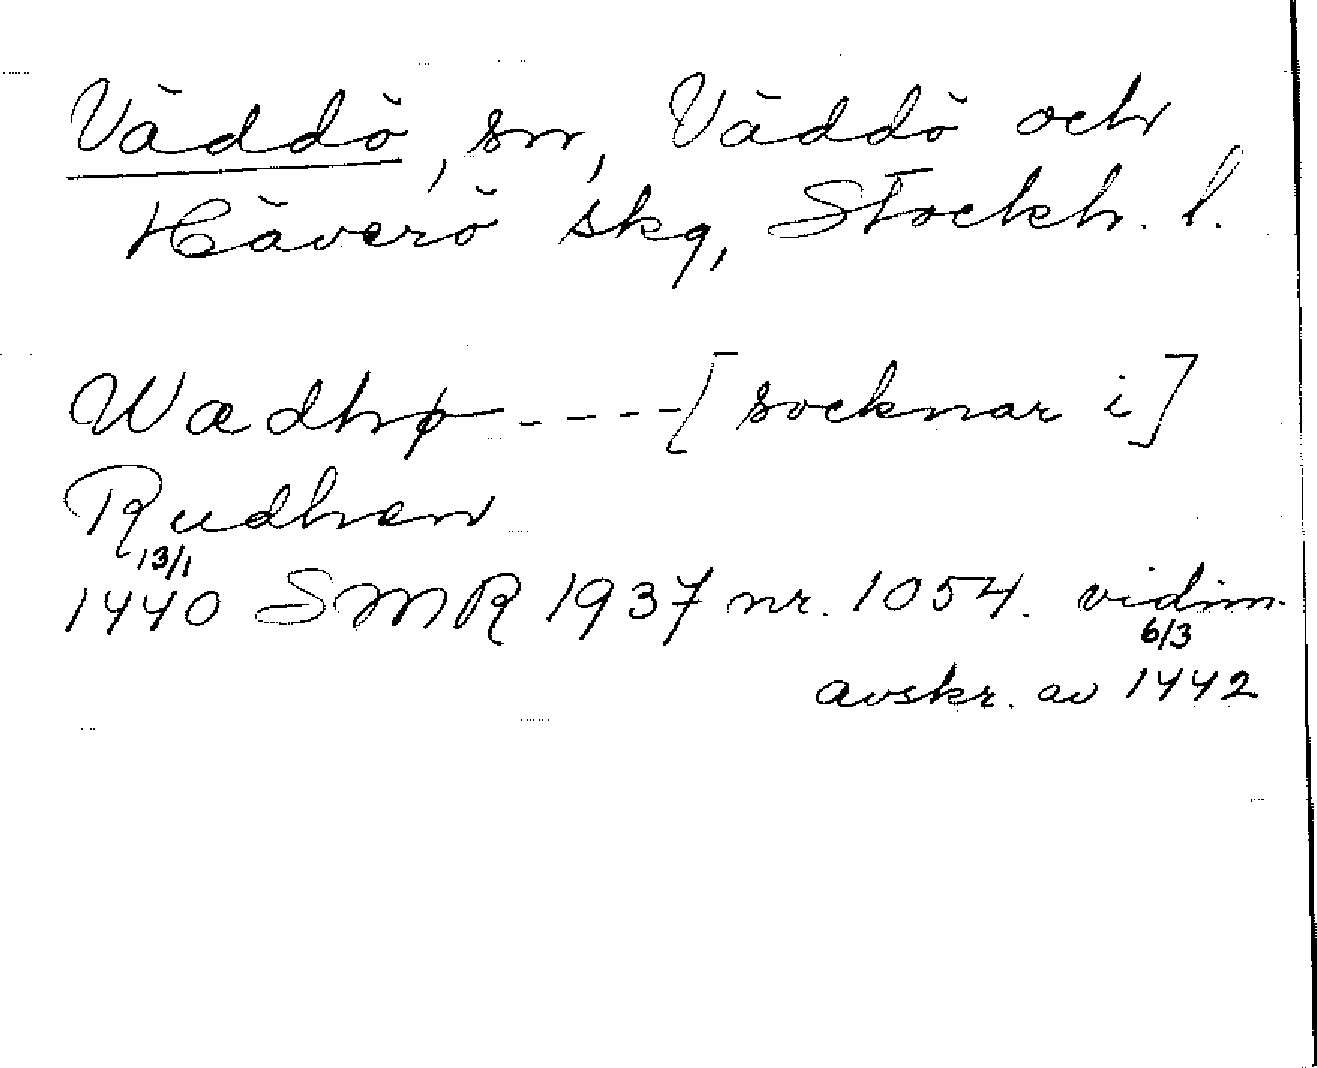 Väddö, sn, Väddö och
Häverö skg, Stockh. l.
Wædhø ---- [socknar i]
Rudhen
13/1
1440 SMR 1937 nr. 1054. vidim.
6/3
avskr. av 1442